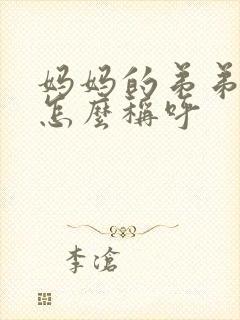 妈妈的弟弟
怎麼稱呼
李滄